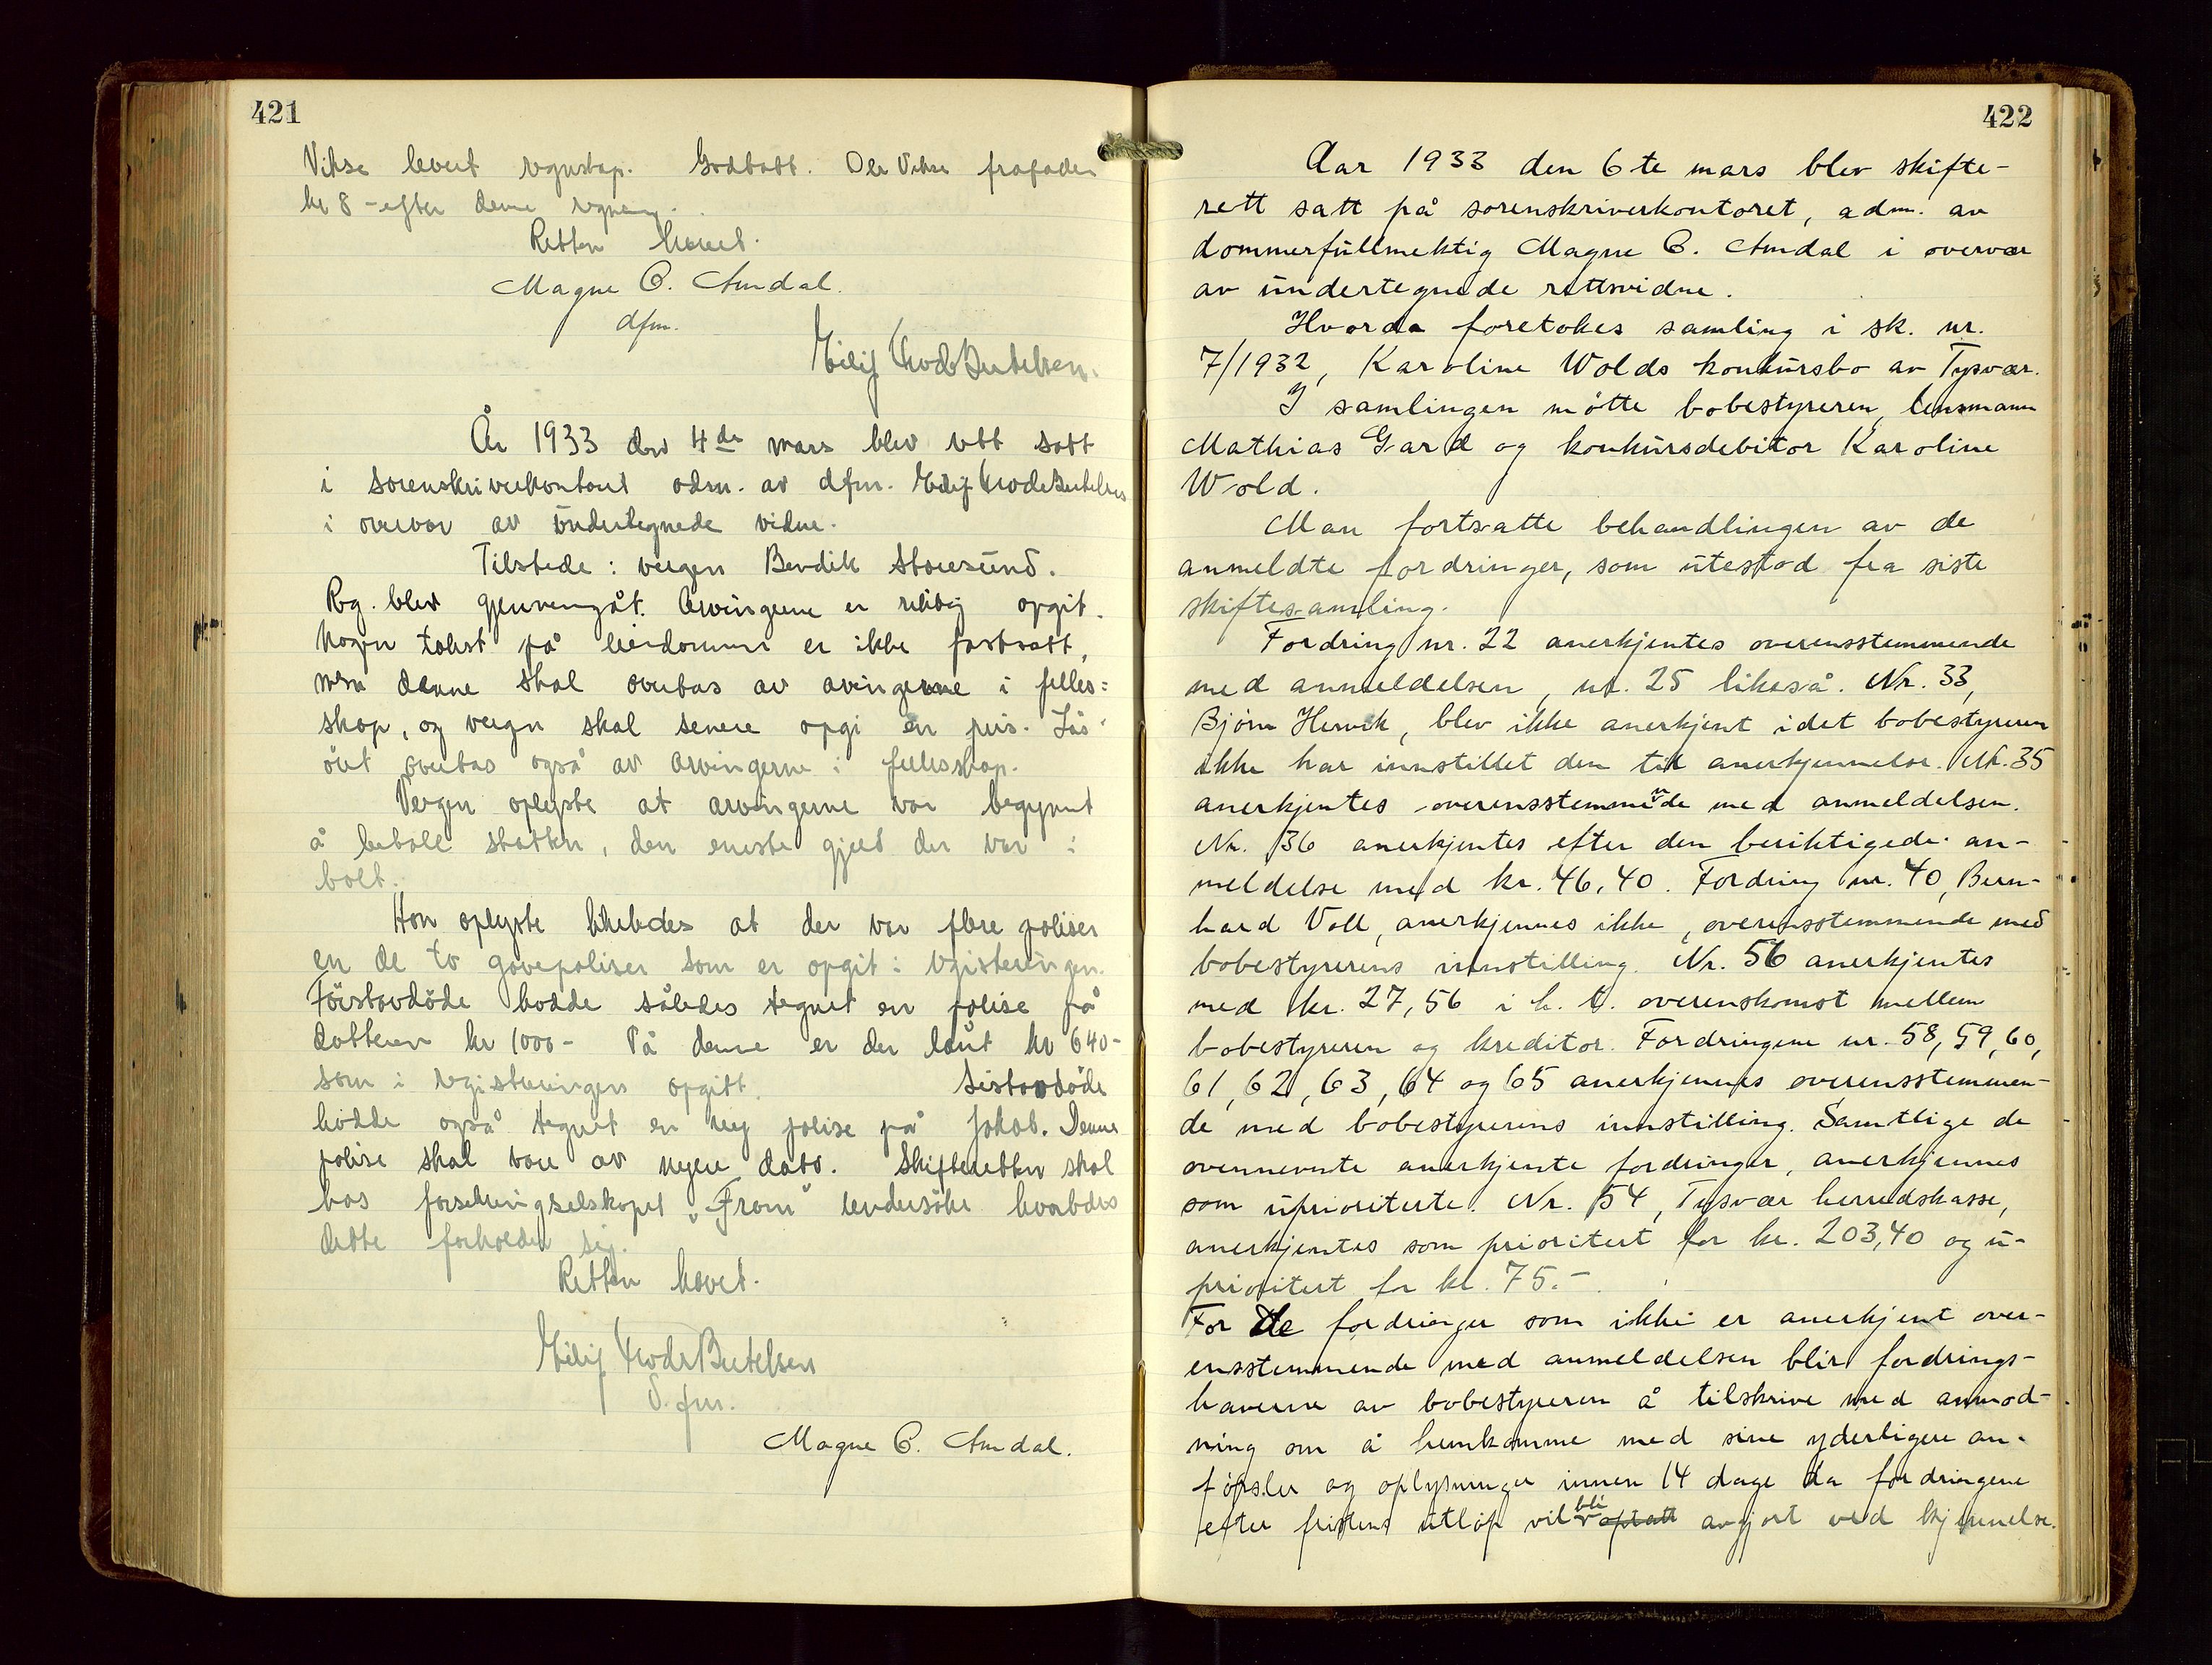 421
Vikse levert regnskap. Godtatt. Ole Vikse frafader
kr 8 - efter denne regning.
Retten hævet.
Magne C. Amdal.
dfm.
Eilif Bertelsen.
År 1933 den 4de mars blev rett satt
i sorenskriverkontoret adm. av dfm. Eilif Bertelsen
i overvær av undertegnede vidne.
Tilstede: vergen Bendik Storesund.
Rg. blev gjennemgåt. Arvingerne er riktig opgit.
Nogen takst på eiendommen er ikke fastsatt,
men denne skal overtas av arvingerne i felles=
skap, og vergen skal senere opgi en pris. Løs=
øret overtas også av arvingerne i fellesskap.
Vergen oplyste at arvingerne var begynnt
å betale skatten, den eneste gjeld der var i
boet.
Han oplyste likeledes at der var flere poliser
en de to gavepoliser som er opgit i registeringen.
Förstavdöde hadde således tegnet en polise på
datteren kr 1000- På denne er der lånt kr 640-
som i registreringen opgitt. Sistavdöde
hadde også tegnet en ny polise på Jakob. Denne
polise skal være av nyere dato. Skifteretten skal
hos forsikringselskapet "Fram" undersöke hvorledes
dette forholder sig.
Retten hævet.
Eilif Bertelsen
d.fm.
Magne C. Amdal.
422
Aar 1933 den 6te mars blev skifte-
rett satt på sorenskriverkontoret, adm. av
dommerfullmektig Magne C. Amdal i overvær
av undertegnede rettsvidne.
Hvorda foretokes samling i sk. nr.
7/1932, Karoline Wolds konkursbo av Tysvær.
I samlingen møtte bobestyreren, lensmann
Mathias Gard og konkursdebitor Karoline
Wold.
Man fortsatte behandlingen av de
anmeldte fordringer, som utestod fra siste
skiftesamling.
Fordring nr. 22 anerkjentes overensstemmende
med anmeldelsen, nr. 25 likeså. Nr. 33,
Bjørn Hervik, blev ikke anerkjent idet bobestyreren
ikke har innstillet den til anerkjennelse. Nr. 35
anerkjentes overensstemmende med anmeldelsen.
Nr. 36 anerkjentes efter den beriktigede an-
meldelse med kr. 46,40. Fordring nr. 40, Bern-
hard Voll, anerkjennes ikke, overensstemmende med
bobestyrerens innstilling. Nr. 56 anerkjentes
med kr. 27,56 i h. t. overenskomst mellem
bobestyreren og kreditor. Fordringene nr. 58, 59, 60,
61, 62, 63, 64 og 65 anerkjennes overensstemmen-
de med bobestyrerens innstilling. Samtlige de
ovennevnte anerkjente fordringer, anerkjennes
som uprioriterte. Nr. 54, Tysvær herredskasse,
anerkjentes som prioritert for kr. 203,40 og u-
prioritert for kr. 75.-
For de fordringer som ikke er anerkjent over-
ensstemmende med anmeldelsen blir fordrings-
haverne av bobestyreren å tilskrive med anmod-
ning om å fremkomme med sine yderligere an-
førsler og oplysninger innen 14 dage da fordringene
efter fristens utløp vil bli optatt avgjort ved kjennelse.